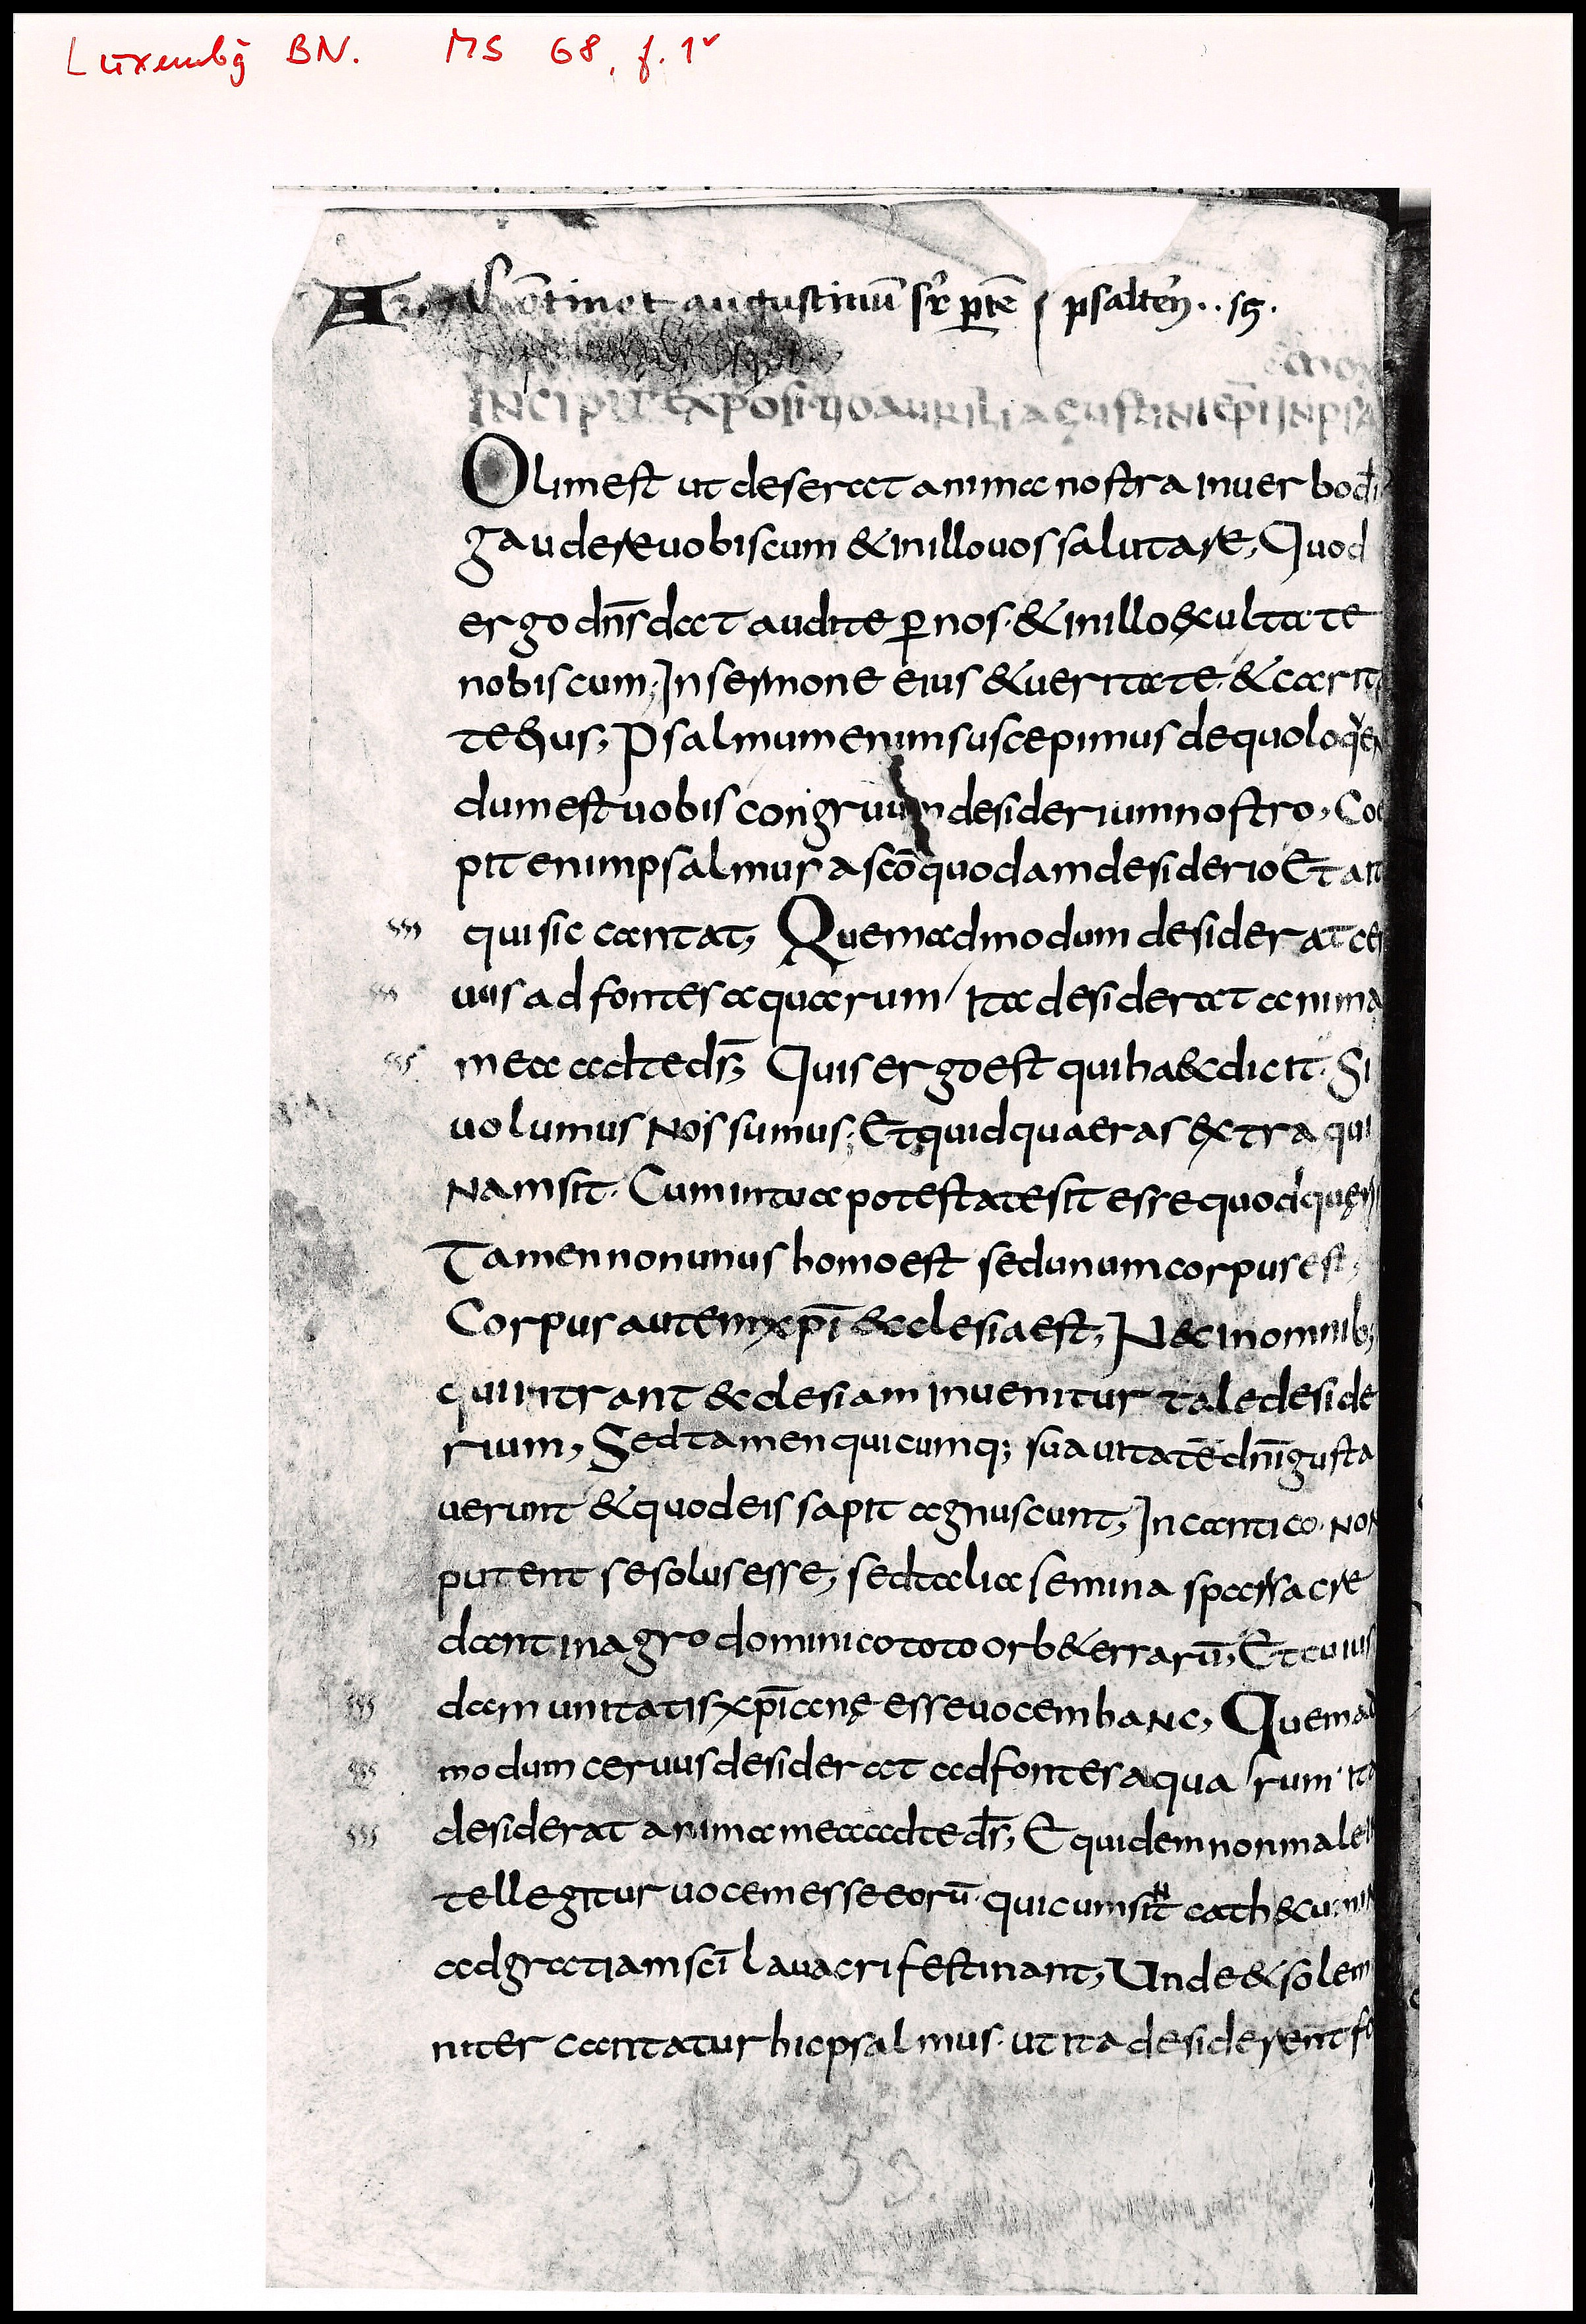 Luxembg BN. MS 68, f. 1v
ↄ̄tinet augustinū sr̄ ptē psalterij
INCIPIT EXPOSITIO AURILI AGUSTINI EPI IN PSA
Olim est ut deserat anima nostra in uerbo di
gaudere uobiscum & in illo uos salutare, Quod
ergo dn̄s dat audite ꝑ nos · & in illo exultate
nobiscum; In sermone eius & ueritate · & carita
te hus, Psalmum enim suscepimus de quo loqen
dum est uobis congruum desiderium nostro, Coe
pit enim psalmus a scō quodam desiderio Et ait
qui sic cantat, Quemadmodum desiderat cer
uus ad fontes aquarum / ita desiderat anima
mea ad te ds̄, Quis ergo est qui haec dicit · Si
uolumus Nos sumus; Et quid quaeras extra qui
Nam sit · Cum in tua potestate sit esse quod quęris
Tamen non unus homo est sed unum corpus est,
Corpus autem xp̄i ecclesia est, Nec in omnib;
qui intrant ecclesiam inuenitur tale deside
rium, Sed tamen quicumq; suauitatē dn̄i gusta
uerunt & quod eis sapit agnuscunt, In cantico · non
putent se solus esse, sed talia semina sparsa cre
dant in agro dominico toto orb& errarū, Et cuius
dam unitatis xp̄ianę esse uocem hanc, Quemad
modum ceruus desiderat ad fontes aqua rum ita
desiderat anima mea ad te ds̄, Equidem non male in
tellegitur uocem esse eorū · qui cum sint cathecumin
ad gratiam sc̄i lauacri festinant, Unde & solem
niter cantatur hic psalmus · ut ita desiderent fo